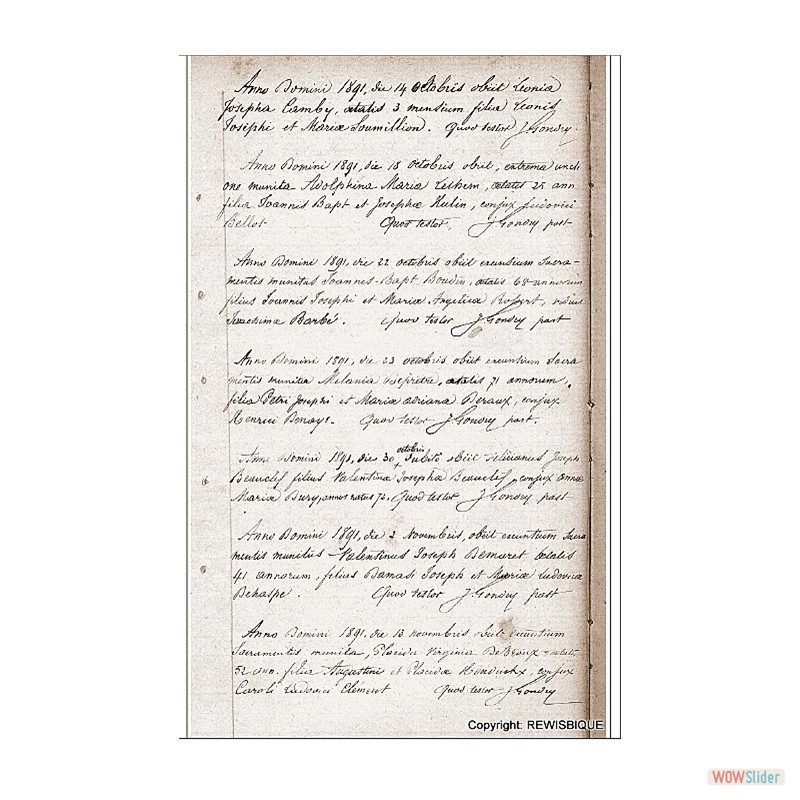 Anno Domini 1891, die 14 octobris obiit Leonia
Josepha Camby, ætatis 3 mensium filia Leonis
Josephi et Mariæ Soumillion. Quod testor J. Gondry.
Anno Domini 1891, die 18 octobris obiit, extrema uncti
one munita Adolphina Maria, ætatis 25 ann
filia Joannis Bapt et Josephæ Hulin, conjux Ludovici
Bellot Quod testor, J. Gondry past
Anno Domini 1891, die 22 octobris obiit exeuntium Sacra-
mentis munitus Joannes-Bapt Boudin, ætatis 68 annorum
filius Joannis Josephi et Mariæ Angelica Robert, viduus
Joachima Barbé. Quod testor J. Gondry past
Anno Domini 1891, die 23 octobris obiit exeuntium Sacra
mentis munita Melania, ætatis 71 annorum,
filia Petri Josephi et Mariæ Adriana Deraux, conjux
Henrici Denays. Quod testor J. Gondry past.
octobris
Anno Domini 1891, die 30 + subitò obiit Felicianus Joseph
Beauclef filius Valentinæ Josepha Beauclef, conjux annæ
Mariæ Dury, annos natus 72. Quod testor J. Gondry past
Anno Domini 1891, die 2 Novembris, obiit exeuntium Sacra
mentis munitus Valentinus Joseph Demaret ætatis
41 annorum, filius Damasi Joseph et Mariæ Ludovica
Dehaspe. Quod testor J. Gondry past
Anno Domini 1891, die 13 novembris obiit exeuntium
Sacramentis munita, Placida Virginia DeBraux ætatis
52 ann. filia Augustini et Placidæ Hendrickx, conjux
Caroli Ludovici Clément Quod testor J. Gondry
Copyright: REWISBIQUE
WOWSlider